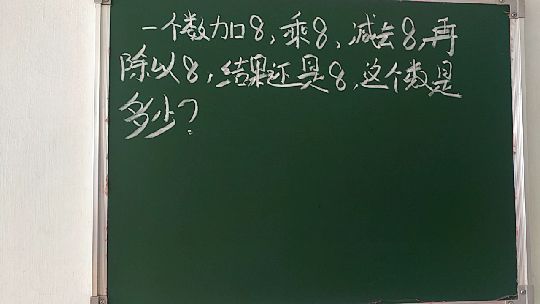 一个数加8,乘8,减去8,再
除以8,结果还是8,这个数是
多少?